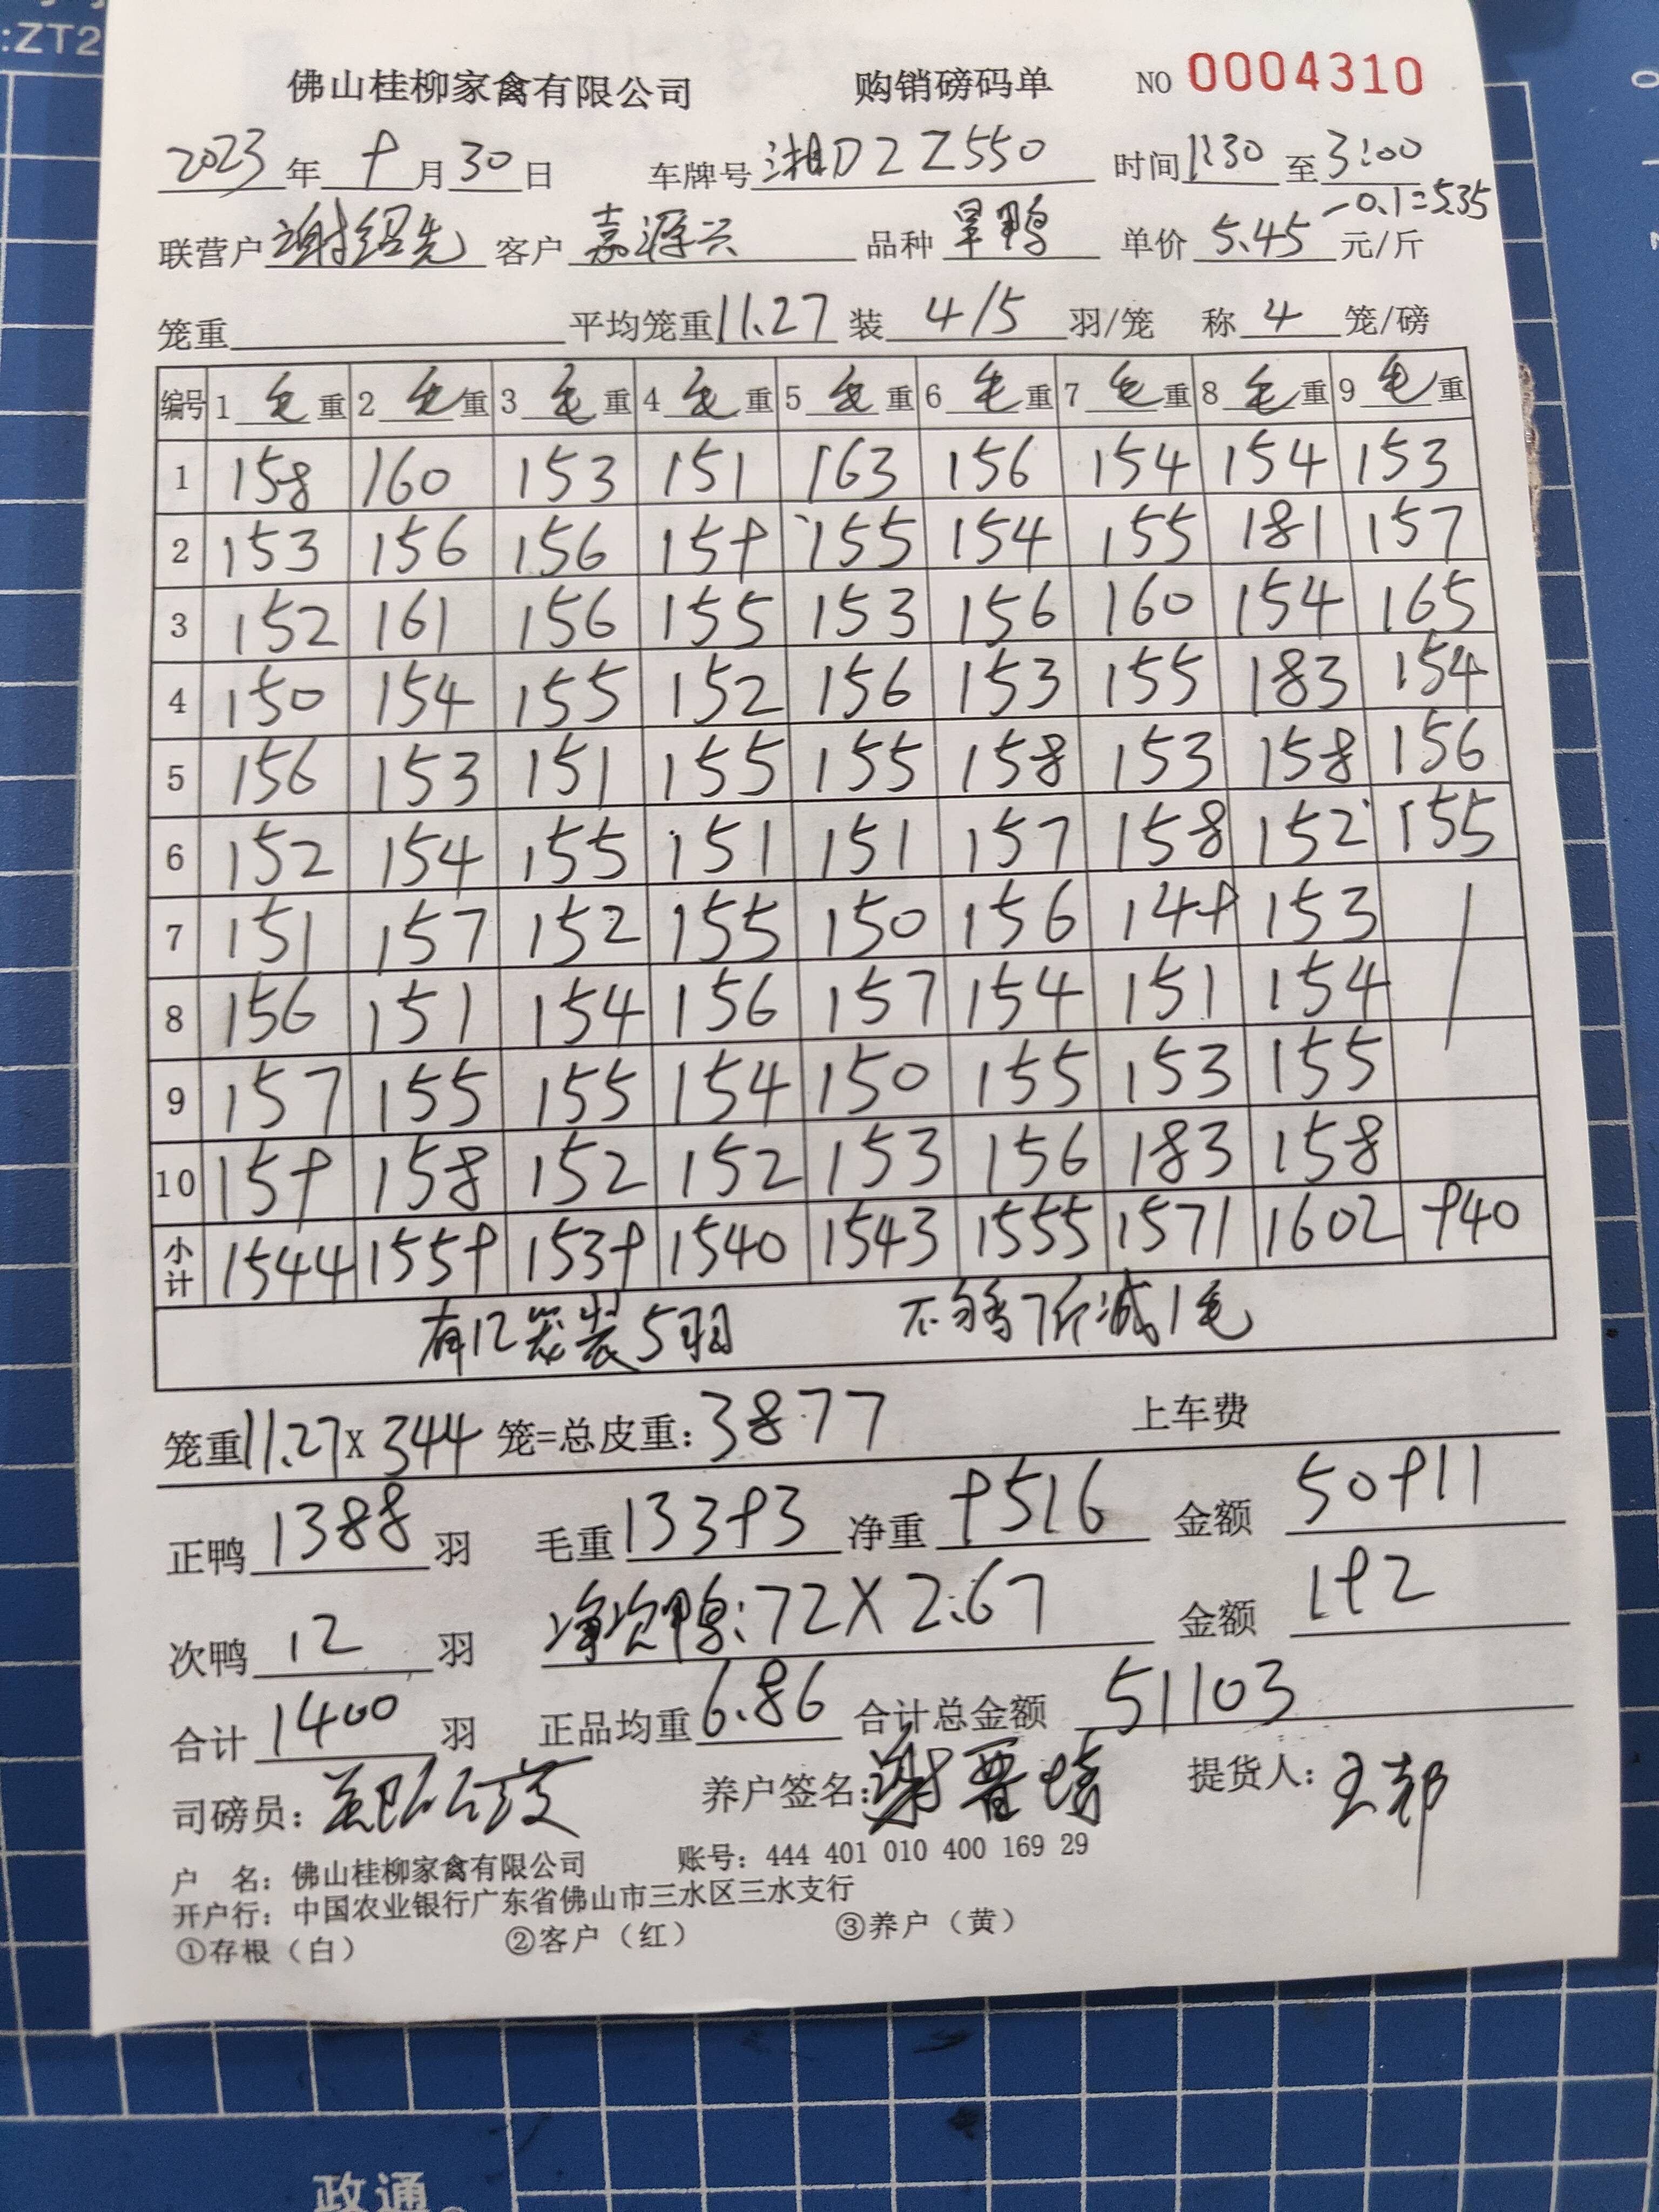 :ZT2
佛山桂柳家禽有限公司 购销磅码单 NO 0004310
2023年 9月30日 车牌号 湘D2Z550 时间 1:30 至 3:00
-0.1=5.35
联营户 谢绍先 客户 嘉源兴 品种 旱鸭 单价 5.45 元/斤
笼重 平均笼重 11.27 装 4/5 羽/笼 称 4 笼/磅
编号 1 毛重 2 毛重 3 毛重 4 毛重 5 毛重 6 毛重 7 毛重 8 毛重 9 毛重
1 158 160 153 151 163 156 154 154 153
2 153 156 156 159 155 154 155 181 157
3 152 161 156 155 153 156 160 154 165
4 150 154 155 152 156 153 155 183 154
5 156 153 151 155 155 158 153 158 156
6 152 154 155 151 151 157 158 152 155
7 151 157 152 155 150 156 149 153
8 156 151 154 156 157 154 151 154
9 157 155 155 154 150 155 153 155
10 159 158 152 152 153 156 183 158
小计 1544 1559 1539 1540 1543 1555 1571 1602 940
有12笼装5羽 不够7斤减1毛
笼重11.27X 344 笼=总皮重: 3877 上车费
正鸭 1388 羽 毛重 13393 净重 9516 金额 50911
次鸭 12 羽 净次鸭:72X2.67 金额 192
合计 1400 羽 正品均重 6.86 合计总金额 51103
司磅员: 养户签名: 提货人:
户 名: 佛山桂柳家禽有限公司 账号: 444 401 010 400 169 29
开户行: 中国农业银行广东省佛山市三水区三水支行
①存根（白） ②客户（红） ③养户（黄）
政通